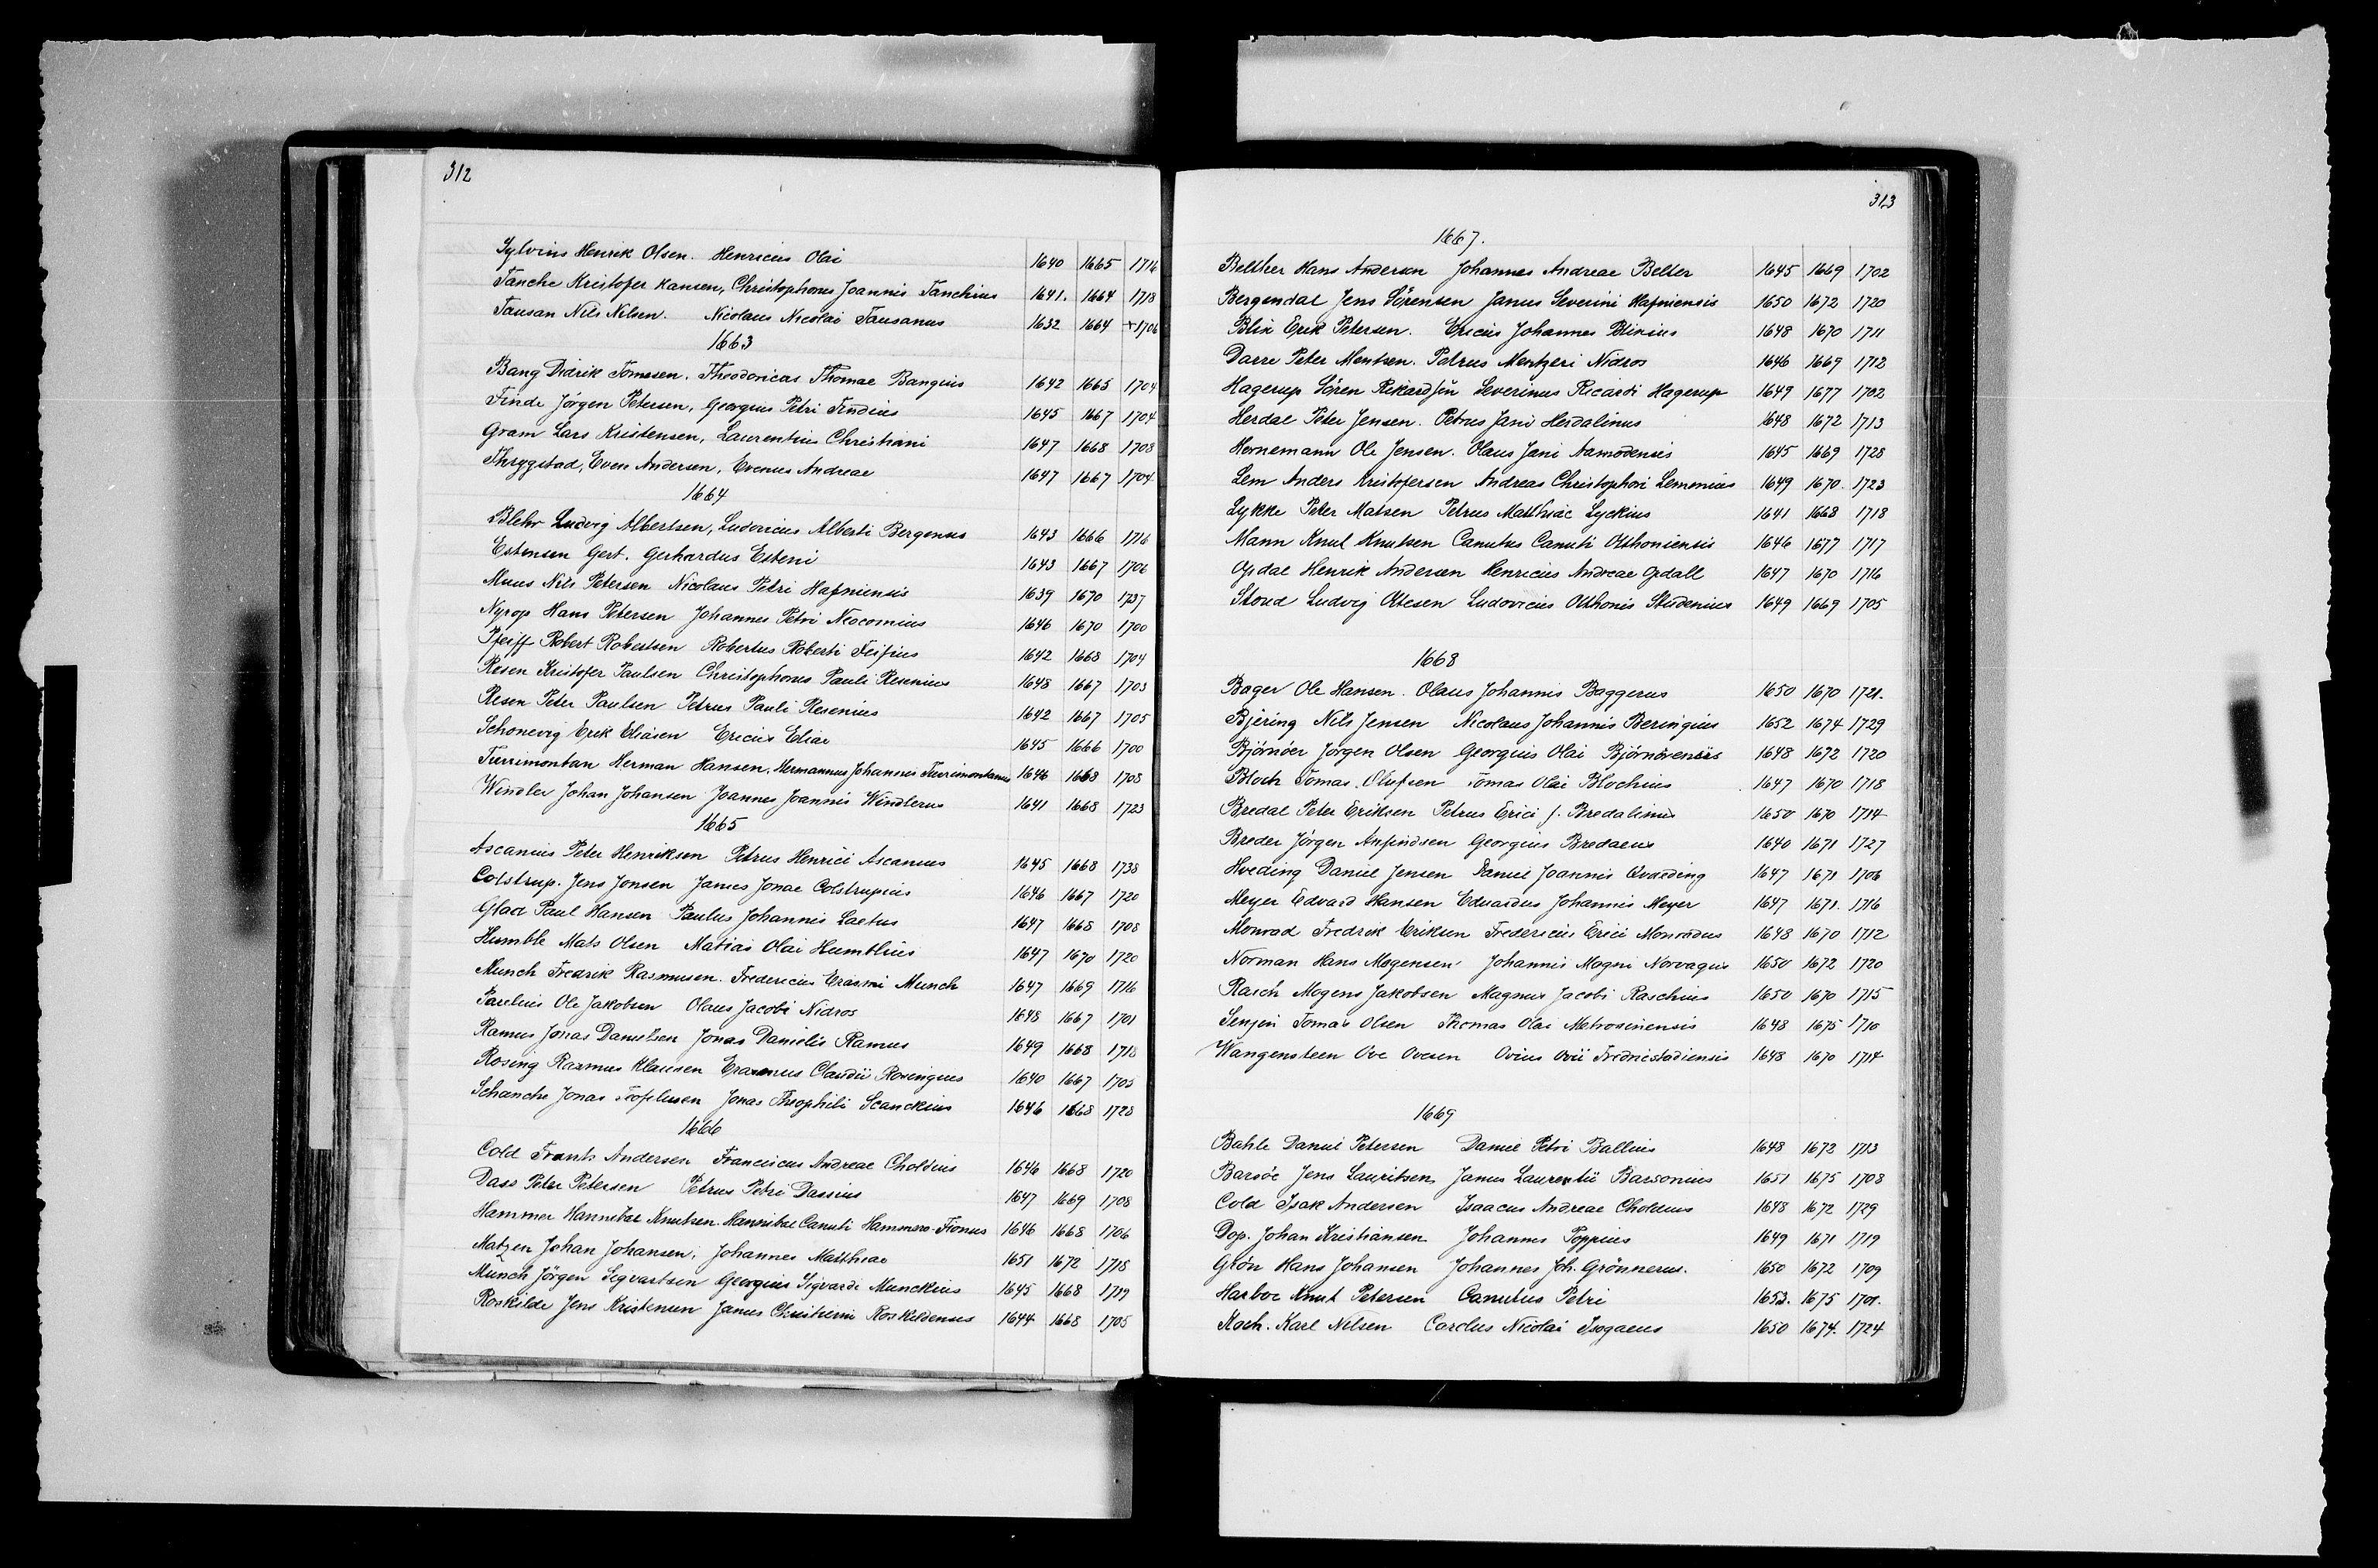 312
Sylvius Henrik Olsen. Henricus Olai 1640 1665 1716
Tanche Kristofer Hansen, Christophorus Joannis Tanchius 1641. 1664 1718
Tausan Nils Nilsen. Nicolaus Nicolai Tausanus 1632 1664 +1706
1663
Bang Didrik Tomesen. Theodoricus Thomae Bangius 1642 1665 1704
Finde Jörgen Petersen, Georgius Petri Findius 1645 1667 1704
Gram Lars Kristensen, Laurentius Christiani 1647 1668 1708
Thrygstad, Even Andersen, Evenus Andreae 1647 1667 1704
1664
Blehr Ludvig Albertsen, Ludovicus Alberti Bergensis 1643 1666 1716
Estensen Gert. Gerhardus Esteni 1643 1667 1706
Muus Nils Petersen Nicolaus Petri Hafniensis 1639 1670 1737
Nyrop Hans Petersen Johannes Petri Neocomius 1646 1670 1700
Pfeiff Robert Robertsen Robertus Roberti Feifius 1642 1668 1704
Resen Kristofer Paulsen Christophorus Pauli Resenius 1648 1667 1703
Resen Peter Paulsen Petrus Pauli Resenius 1642 1667 1705
Schonevig Erik Eliasen Ericus Eliae 1645 1666 1700
Turrimontan Herman Hansen. Hermannus Johannis Turrimontanus 1646 1668 1708
Windler Johan Johansen Joannes Joannis Windlerus 1641 1668 1723
1665
Ascanius Peter Henriksen Petrus Henrici Ascanius 1645 1668 1738
Colstrup. Jens Jonsen Janus Jonae Colstrupius 1646 1667 1720
Glad Paul Hansen Paulus Johannis Laetus 1647 1668 1708
Humble Mats Olsen Matias Olai Humblius 1647 1670 1720
Munch Fredrik Rasmusen. Fredericus Erasmi Munch 1647 1669 1716
Parelius Ole Jakobsen Olaus Jacobi Nidros 1648 1667 1701
Ramus Jonas Danielsen Jonas Danielis Ramus 1649 1668 1718
Rosing Rasmus Klausen Erasmus Claudii Rosingius 1640 1667 1705
Schanche Jonas Teofilusen Jonas Theophili Scanckius 1646 1668 1728
1666
Cold Frants Andersen Franciscus Andreae Choldius 1646 1668 1720
Dass Peter Petersen Petrus Petri Dassius 1647 1669 1708
Hammer Hannibal Knutsen. Hannibal Canuti Hammero-Fionus 1646 1668 1706
Matzen Johan Johansen, Johannes Matthiae 1651 1672 1718
Münch Jörgen Sigvartsen Georgius Sigvardi Munckius 1645 1668 1719
Roskilde Jens Kristensen Janus Christierni Roskildensis 1644 1668 1705
313
1667.
Belther Hans Andersen Johannes Andreae Belter 1645 1669 1702
Bergendal Jens Sörensen Janus Severini Hafniensis 1650 1672 1720
Blix Erik Petersen. Ericus Johannes Blixius 1648 1670 1711
Darre Peter Mentsen. Petrus Mentzeri Nidros 1646 1669 1712
Hagerup Sören Rikardsøn Severinus Ricardi Hagerup 1649 1677 1702
Herdal Peter Jensen. Petrus Jani Herdalinus 1648 1672 1713
Hornemann Ole Jensen. Olaus Jani Aamodensis 1645 1669 1728
Lem Anders Kristofersen Andreas Christophori Lemmius 1649 1670. 1723
Lykke Peter Matsen Petrus Matthiae Lyckius 1641 1668 1718
Mann Knut Knutsen Canutus Canuti Otthoniensis 1646 1677 1717
Opdal Henrik Andersen Henricus Andreae Opdall 1647 1670 1716
Stoud Ludvig Ottesen Ludovicus Otthonis Studenius 1649 1669 1705
1668
Bager Ole Hansen. Olaus Johannis Baggerus 1650 1670 1721.
Bjering Nils Jensen Nicolaus Johannis Beringius 1652 1674 1729
Björnöer Jorgen Olsen Georgius Olai Björnörensis 1648 1672 1720
Bloch Tomas. Olufsen Tomas Olai Blochius 1647 1670 1718
Bredal Peter Eriksen Petrus Erici f. Bredalinus 1650 1670 1714
Breder Jörgen Anfindsen Georgius Bredaeus 1640 1671 1727
Hveding Daniel Jensen Daniel Joannis Qvaeding 1647 1671 1706
Meyer Edvard Hansen Eduardus Johannis Meyer 1647 1671. 1716
Monrad Fredrik Eriksen Fredericus Erici Monradus 1648 1670 1712
Norman Hans Mogensen Johannis Magni Norvagus 1650 1672 1720
Rasch Mogens Jakobsen Magnus Jacobi Raschius 1650 1670 1715
Senjen Tomas Olsen Thomas Olai Metrosinensis 1648 1675 1710
Wangensteen Ove Ovesen Ovius Ovii Fredricstadiensis 1648 1670 1714
1669
Bahle Daniel Petersen Daniel Petri Ballius 1648 1672 1713
Barsöe Jens Lauritsen, Janus Laurentii Barsonius 1651 1675 1708
Cold Isak Andersen Isaacus Andreae Choldius 1648 1672 1729
Dop. Johan Kristiansen Johannes Doppius 1649 1671 1719
Grön Hans Johansen Johannes Joh. Grönnerus. 1650 1672 1709
Harboe Knut Petersen Canutus Petri 1653. 1675 1701.
Koch. Karl Nilsen Carolus Nicolai Isogaeus 1650 1674. 1724